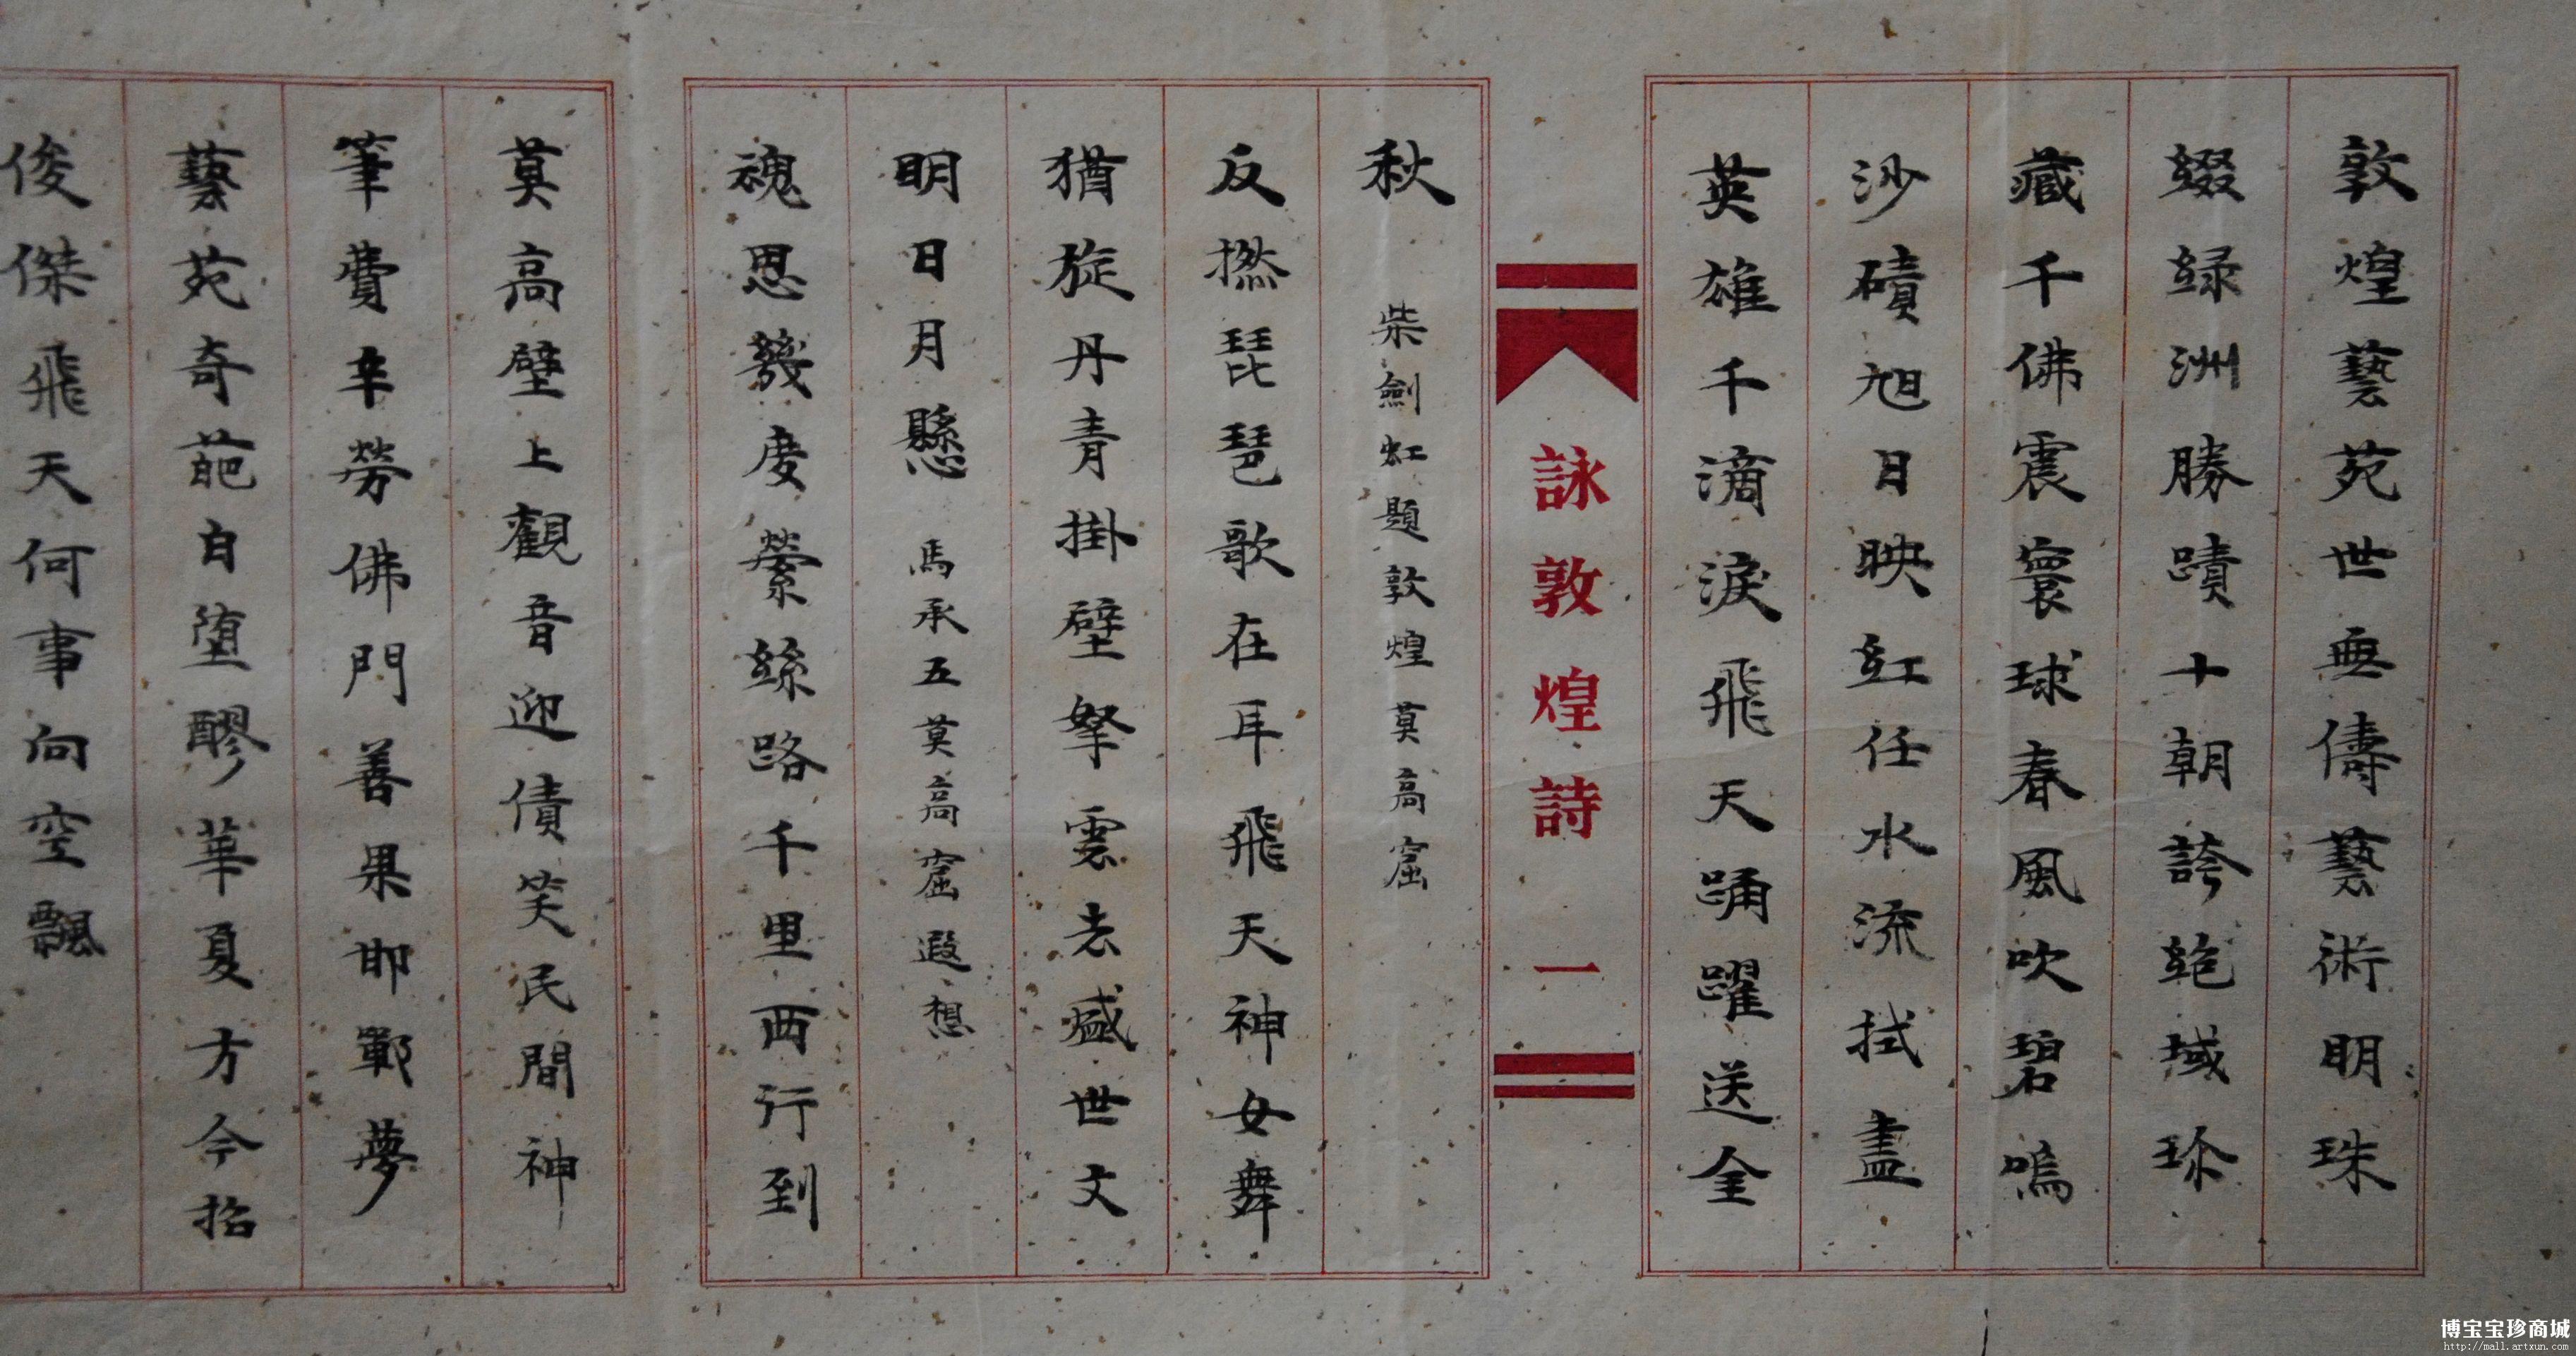 敦煌藝苑世無儔藝術明珠
綴綠洲勝蹟十朝誇絶域珍
藏千佛震寰球春風吹碧鳴
沙磧旭日映紅任水流拭盡
英雄千滴淚飛天踊躍送金
詠敦煌詩 一
秋 柴劍虹題敦煌莫高窟
反撚琵琶歌在耳飛天神女舞
猶旋丹青掛壁拏雲去盛世文
明日月懸 馬承五莫高窟遐想
魂思幾度縈絲路千里西行到
莫高壁上觀音迎債笑民間神
筆費辛勞佛門善果邯鄲夢
藝苑奇葩白墮醪華夏方今招
俊傑飛天何事向空飄
博宝宝珍商城
http://mall.artxun.com/